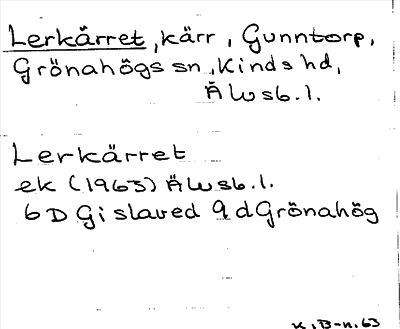 Lerkärret, kärr, Gunntorp,
Grönahögs sn, Kinds hd,
Älvsb. l.
Lerkärret
ek (1963) Älvsb. l.
6D Gislaved 9d Grönahög
K. B-n. 63